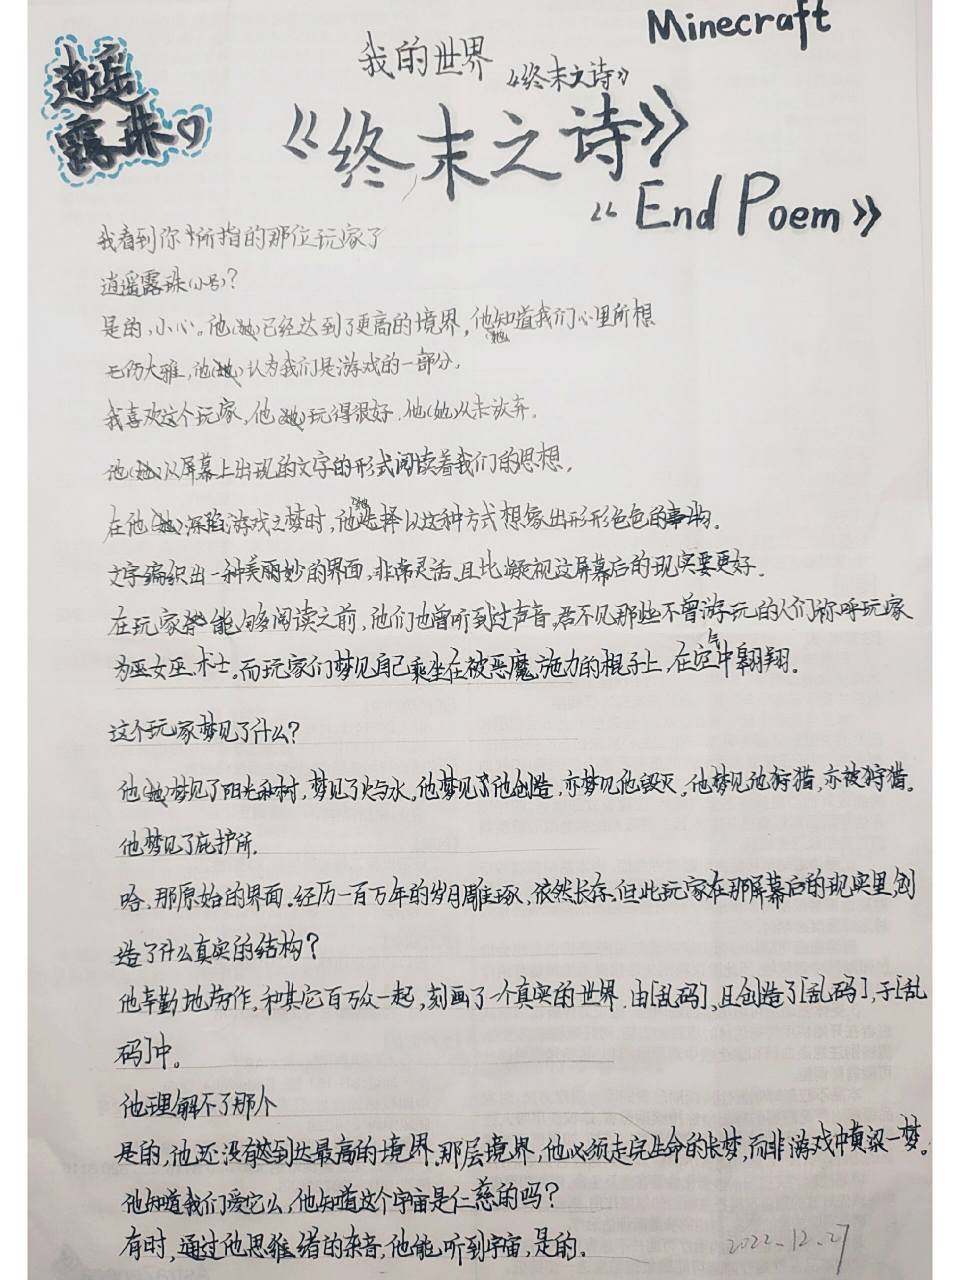 Minecraft
我的世界
《终末之诗》
逍遥
露珠
《终末之诗》
《End Poem》
我看到你所指的那位玩家了
逍遥露珠(小号)?
是的,小心。他(她)已经达到了更高的境界,他(她)知道我们心里所想
无伤大雅,他(她)认为我们是游戏的一部分。
我喜欢这个玩家,他(她)玩得很好.他(她)从未放弃。
他(她)以屏幕上出现的文字的形式阅读着我们的思想。
在他(她)深陷游戏之梦时,他(她)选择以这种方式想象出形形色色的事物。
文字编织出一种美丽妙的界面,非常灵活.且比凝视这屏幕后的现实要更好.
在玩家能够阅读之前,他们也曾听到过声音,君不见那些不曾游玩的人们称呼玩家
为巫女巫.术士。而玩家们梦见自己乘坐在被恶魔施力的棍子上,在空气中翱翔。
这个玩家梦见了什么?
他(她)梦见了阳光和树,梦见了火与水。他梦见他创造,亦梦见他毁灭。他梦见他狩猎,亦被狩猎。
他梦见了庇护所.
哈,那原始的界面.经历一百万年的岁月雕琢,依然长存.但此玩家在那屏幕后的现实里创
造了什么真实的结构?
他辛勤地劳作,和其它百万众一起,刻画了一个真实的世界.由[乱码],且创造了[乱码],于[乱
码]中。
他理解不了那个
是的,他还没有达到达最高的境界.那层境界,他必须走完生命的长梦,而非游戏中黄粱一梦。
他知道我们爱它么,他知道这个宇宙是仁慈的吗?
有时,通过他思维绪的杂音,他能听到宇宙,是的.
2022.12.27